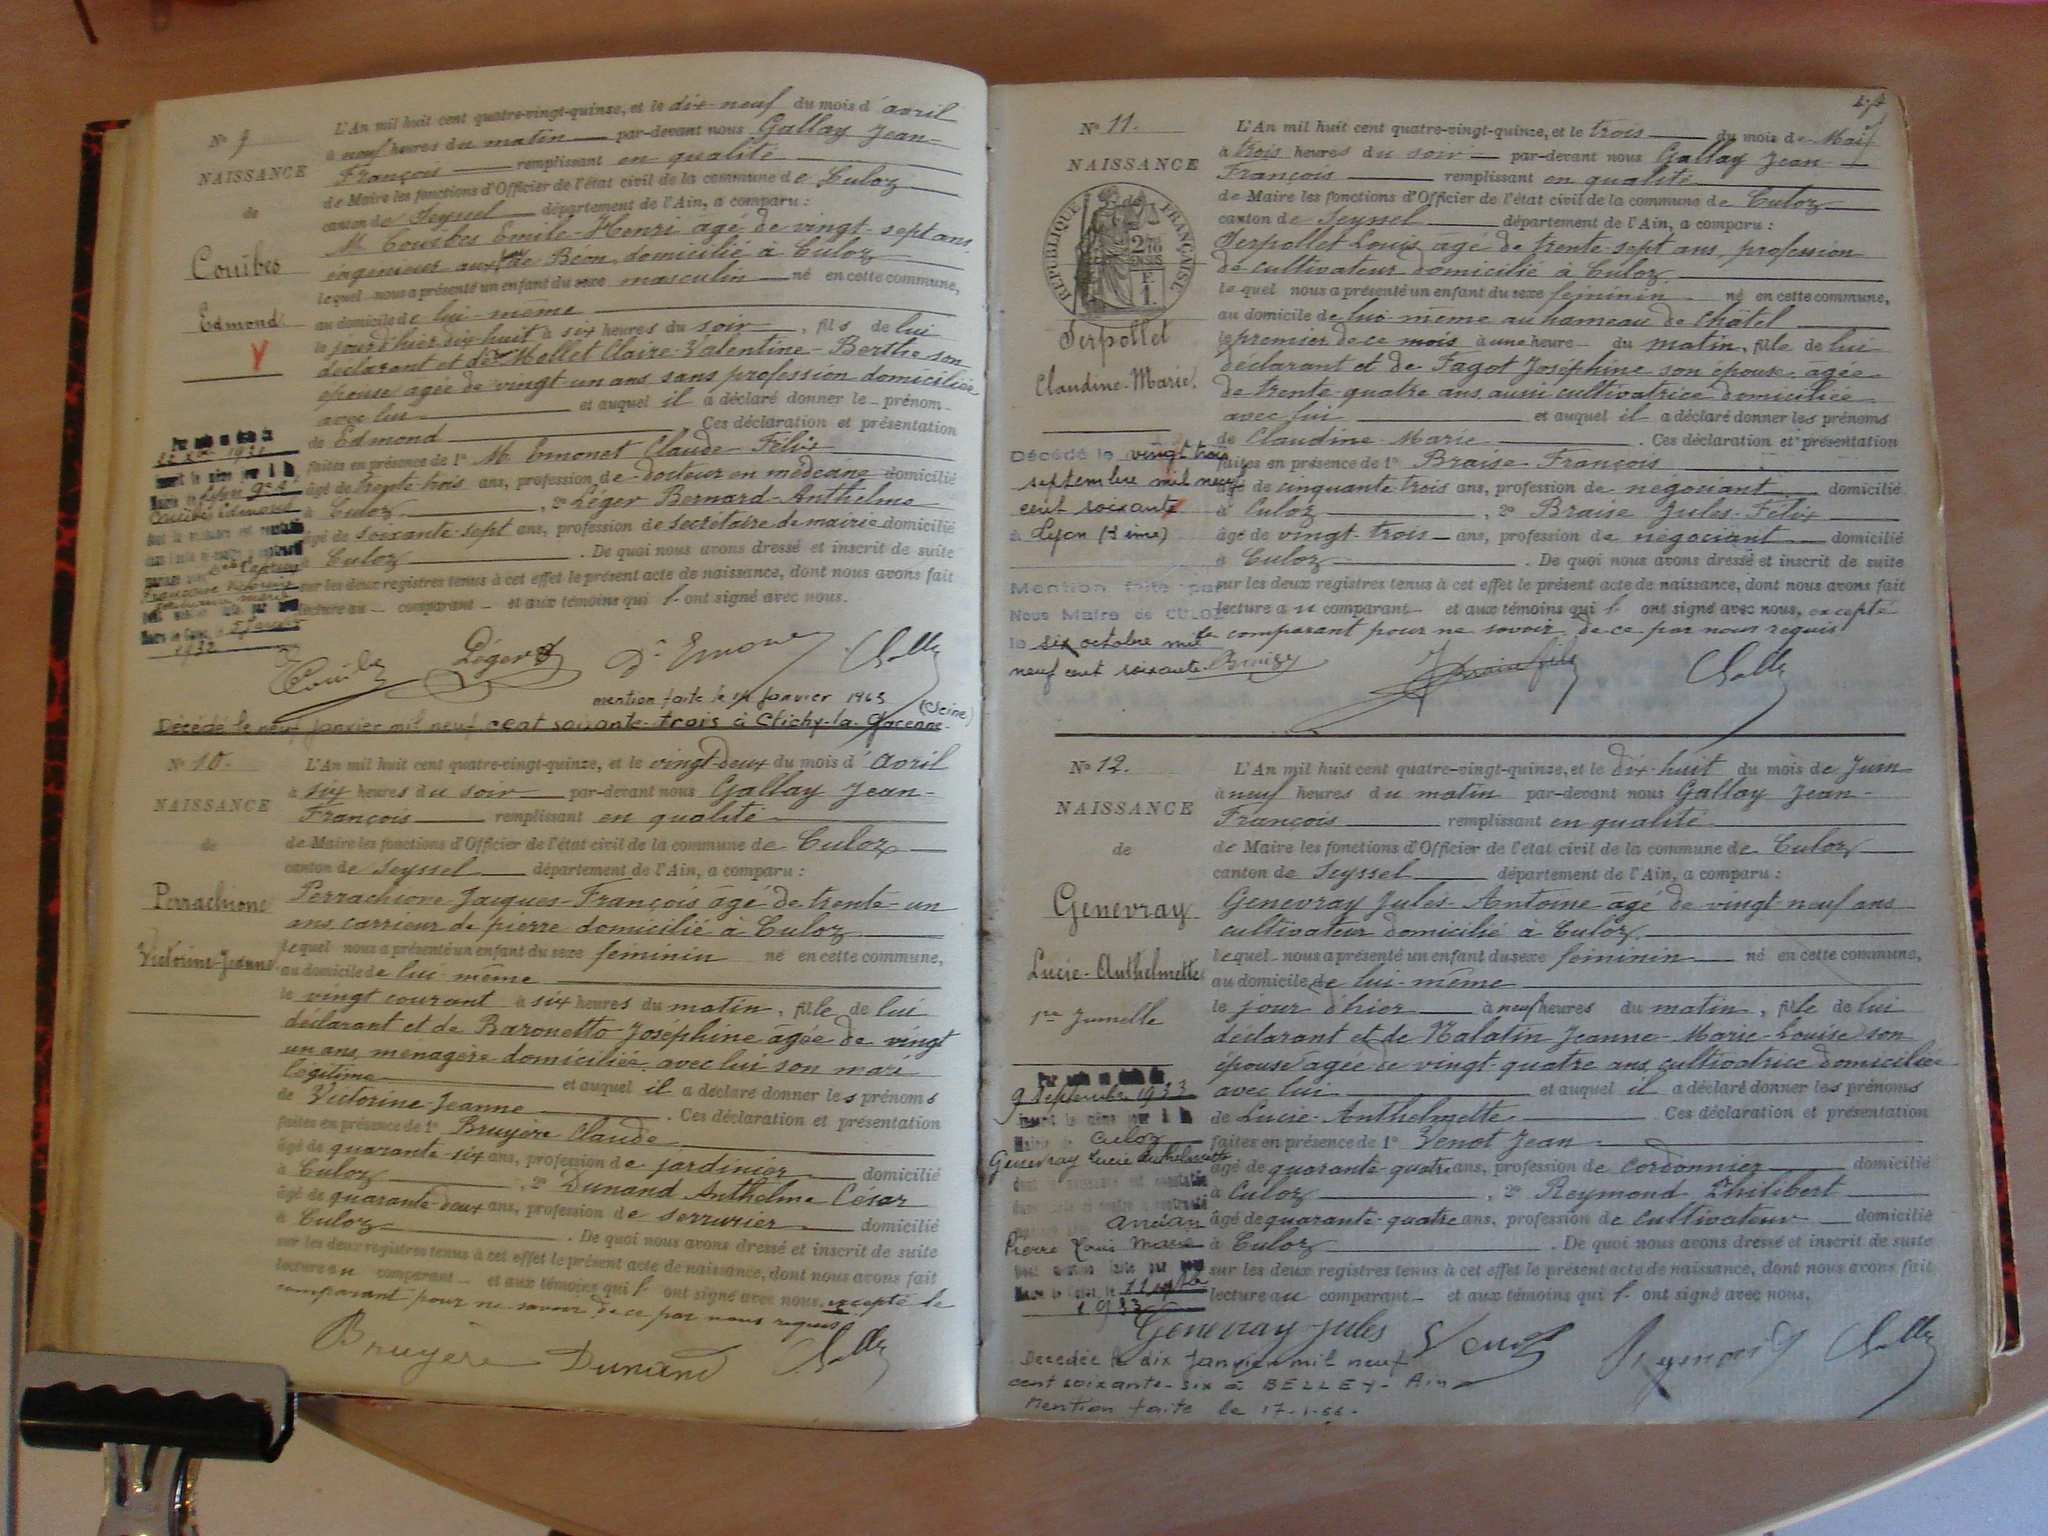 N° 9
NAISSANCE
de
Couibes
Edmond
L'An mil huit cent quatre-vingt-quinze, et le dix-neuf du mois d'avril
à neuf heures du matin par-devant nous Gallay Jean-
François remplissant en qualité
de Maire les fonctions d'Officier de l'état civil de la commune de Culoz
canton de Seyssel département de l'Ain, a comparu :
M. Couibes Emile-Henri âgé de vingt-sept ans,
ingenieur aux de Béon, domicilié à Culoz
lequel nous a présenté un enfant du sexe masculin né en cette commune,
au domicile de lui-même
le jour d'hier dix huit à six heures du soir, fils de lui
déclarant et de Mollet Claire-Valentine-Berthe son
épouse agée de vingt-un ans sans profession domiciliée
avec lui et auquel il a déclaré donner le prénom
de Edmond Ces déclaration et présentation
faites en présence de 1° M. Emonet Claude Félix
âgé de trente trois ans, profession de docteur en médecine domicilié
à Culoz, 2° Léger Bernard-Anthelme
âgé de soixante-sept ans, profession de secrétaire de mairie domicilié
à Culoz. De quoi nous avons dressé et inscrit de suite
sur les deux registres tenus à cet effet le présent acte de naissance, dont nous avons fait
lecture au comparant et aux témoins qui l'ont signé avec nous.
Léger
mention faite le 14 Janvier 1963
Décédé le neuf janvier mil neuf cent soixante-trois à Clichy-la-Garenne (Seine)
N° 10.
NAISSANCE
de
Perrachione
Victorine-Jeanne
L'An mil huit cent quatre-vingt-quinze, et le vingt-deux du mois d'avril
à six heures du soir par-devant nous Gallay Jean-
François remplissant en qualité
de Maire les fonctions d'Officier de l'état civil de la commune de Culoz
canton de Seyssel département de l'Ain, a comparu :
Perrachione Jacques-François âgé de trente-un
ans, carrieur de pierre domicilié à Culoz
lequel nous a présenté un enfant du sexe féminin né en cette commune,
au domicile de lui-même
le vingt courant à six heures du matin, fille de lui
déclarant et de Baronetto Joséphine âgée de vingt
un ans, ménagère domiciliée avec lui son mari
légitime et auquel il a déclaré donner les prénoms
de Victorine-Jeanne. Ces déclaration et présentation
faites en présence de 1° Bruyère Claude
âgé de quarante-six ans, profession de jardinier domicilié
à Culoz, 2° Dunand Anthelme César
âgé de quarante-deux ans, profession de serrurier domicilié
à Culoz. De quoi nous avons dressé et inscrit de suite
sur les deux registres tenus à cet effet le présent acte de naissance, dont nous avons fait
lecture au comparant et aux témoins qui l'ont signé avec nous, excepté le
comparant pour ne savoir de ce par nous requis
Bruyère Dunand
N° 11.
NAISSANCE
de
RÉPUBLIQUE FRANÇAISE
Serpollet
Claudine-Marie
L'An mil huit cent quatre-vingt-quinze, et le trois du mois de Mai
à trois heures du soir par-devant nous Gallay Jean
François remplissant en qualité
de Maire les fonctions d'Officier de l'état civil de la commune de Culoz
canton de Seyssel département de l'Ain, a comparu :
Serpollet Louis âgé de trente-sept ans, profession
de cultivateur domicilié à Culoz
lequel nous a présenté un enfant du sexe féminin né en cette commune,
au domicile de lui-même au hameau de Châtel
le premier de ce mois à une heure du matin, fille de lui
déclarant et de Fagot Joséphine son épouse, agée
de trente-quatre ans, aussi cultivatrice domiciliée
avec lui et auquel il a déclaré donner les prénoms
de Claudine-Marie. Ces déclaration et présentation
faites en présence de 1° Braise François
âgé de cinquante-trois ans, profession de négociant domicilié
à Culoz, 2° Braise Jules-Félix
âgé de vingt-trois ans, profession de négociant domicilié
à Culoz. De quoi nous avons dressé et inscrit de suite
sur les deux registres tenus à cet effet le présent acte de naissance, dont nous avons fait
lecture au comparant et aux témoins qui l'ont signé avec nous, excepté
le comparant pour ne savoir de ce par nous requis
Décédé le vingt trois
septembre mil neuf
cent soixante
à Lyon
Mention faite par
Nous Maire de CULOZ
le six octobre mil
neuf cent soixante
N° 12.
NAISSANCE
de
Genevray
Lucie-Anthelmette
1re Jumelle
L'An mil huit cent quatre-vingt-quinze, et le dix-huit du mois de Juin
à neuf heures du matin par-devant nous Gallay Jean-
François remplissant en qualité
de Maire les fonctions d'Officier de l'état civil de la commune de Culoz
canton de Seyssel département de l'Ain, a comparu :
Genevray Jules-Antoine âgé de vingt-neuf ans
cultivateur domicilié à Culoz
lequel nous a présenté un enfant du sexe féminin né en cette commune,
au domicile de lui-même
le jour d'hier à neuf heures du matin, fille de lui
déclarant et de Malatin Jeanne-Marie-Louise son
épouse agée de vingt-quatre ans, cultivatrice domiciliée
avec lui et auquel il a déclaré donner les prénoms
de Lucie-Anthelmette. Ces déclaration et présentation
faites en présence de 1° Venot Jean
âgé de quarante-quatre ans, profession de cordonnier domicilié
à Culoz, 2° Reymond Philibert
âgé de quarante-quatre ans, profession de cultivateur domicilié
à Culoz. De quoi nous avons dressé et inscrit de suite
sur les deux registres tenus à cet effet le présent acte de naissance, dont nous avons fait
lecture au comparant et aux témoins qui l'ont signé avec nous.
9 Septembre 1933
Culoz
Genevray Lucie Anthelmette
Ancian
Pierre Louis Marie
1933
Genevray Jules Venot
Décédée le dix Janvier mil neuf
cent soixante-six à BELLEY-Ain
Mention faite le 17-1-66.